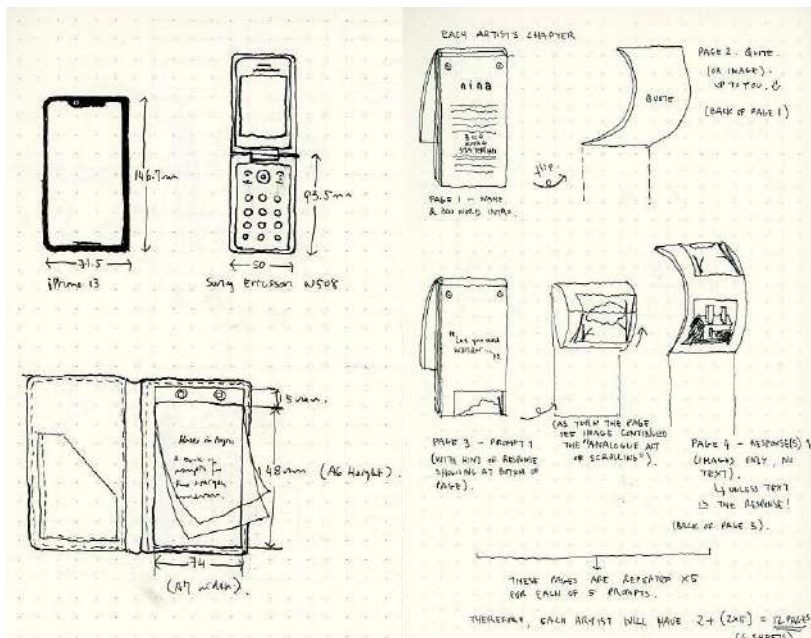 146.7mm
71.5
iPhone 13
93.5mm
50
Sony Ericsson W508
15mm.
148mm (A6 height).
A book of
prompts for
74
(A7 width).
EACH ARTIST'S CHAPTER
nina
300
WORD
STATEMENT
PAGE 1 – NAME
& 300 WORD INTRO.
flip.
QUOTE
PAGE 2. QUOTE.
(OR IMAGE).
UP TO YOU.
(BACK OF PAGE 1)
"Let your mind
wander..."
PAGE 3 – PROMPT 1
(WITH HINT OF RESPONSE
SHOWING AT BOTTOM OF
PAGE).
(AS TURN THE PAGE
SEE IMAGE CONTINUED
THE "ANALOGUE ACT
OF SCROLLING").
PAGE 4 – RESPONSE(S) 1
(IMAGES ONLY, NO
TEXT).
↳ UNLESS TEXT
IS THE RESPONSE!
(BACK OF PAGE 3).
THESE PAGES ARE REPEATED X5
FOR EACH OF 5 PROMPTS.
THEREFORE, EACH ARTIST WILL HAVE 2 + (2X5) = 12 PAGES
(6 SHEETS)